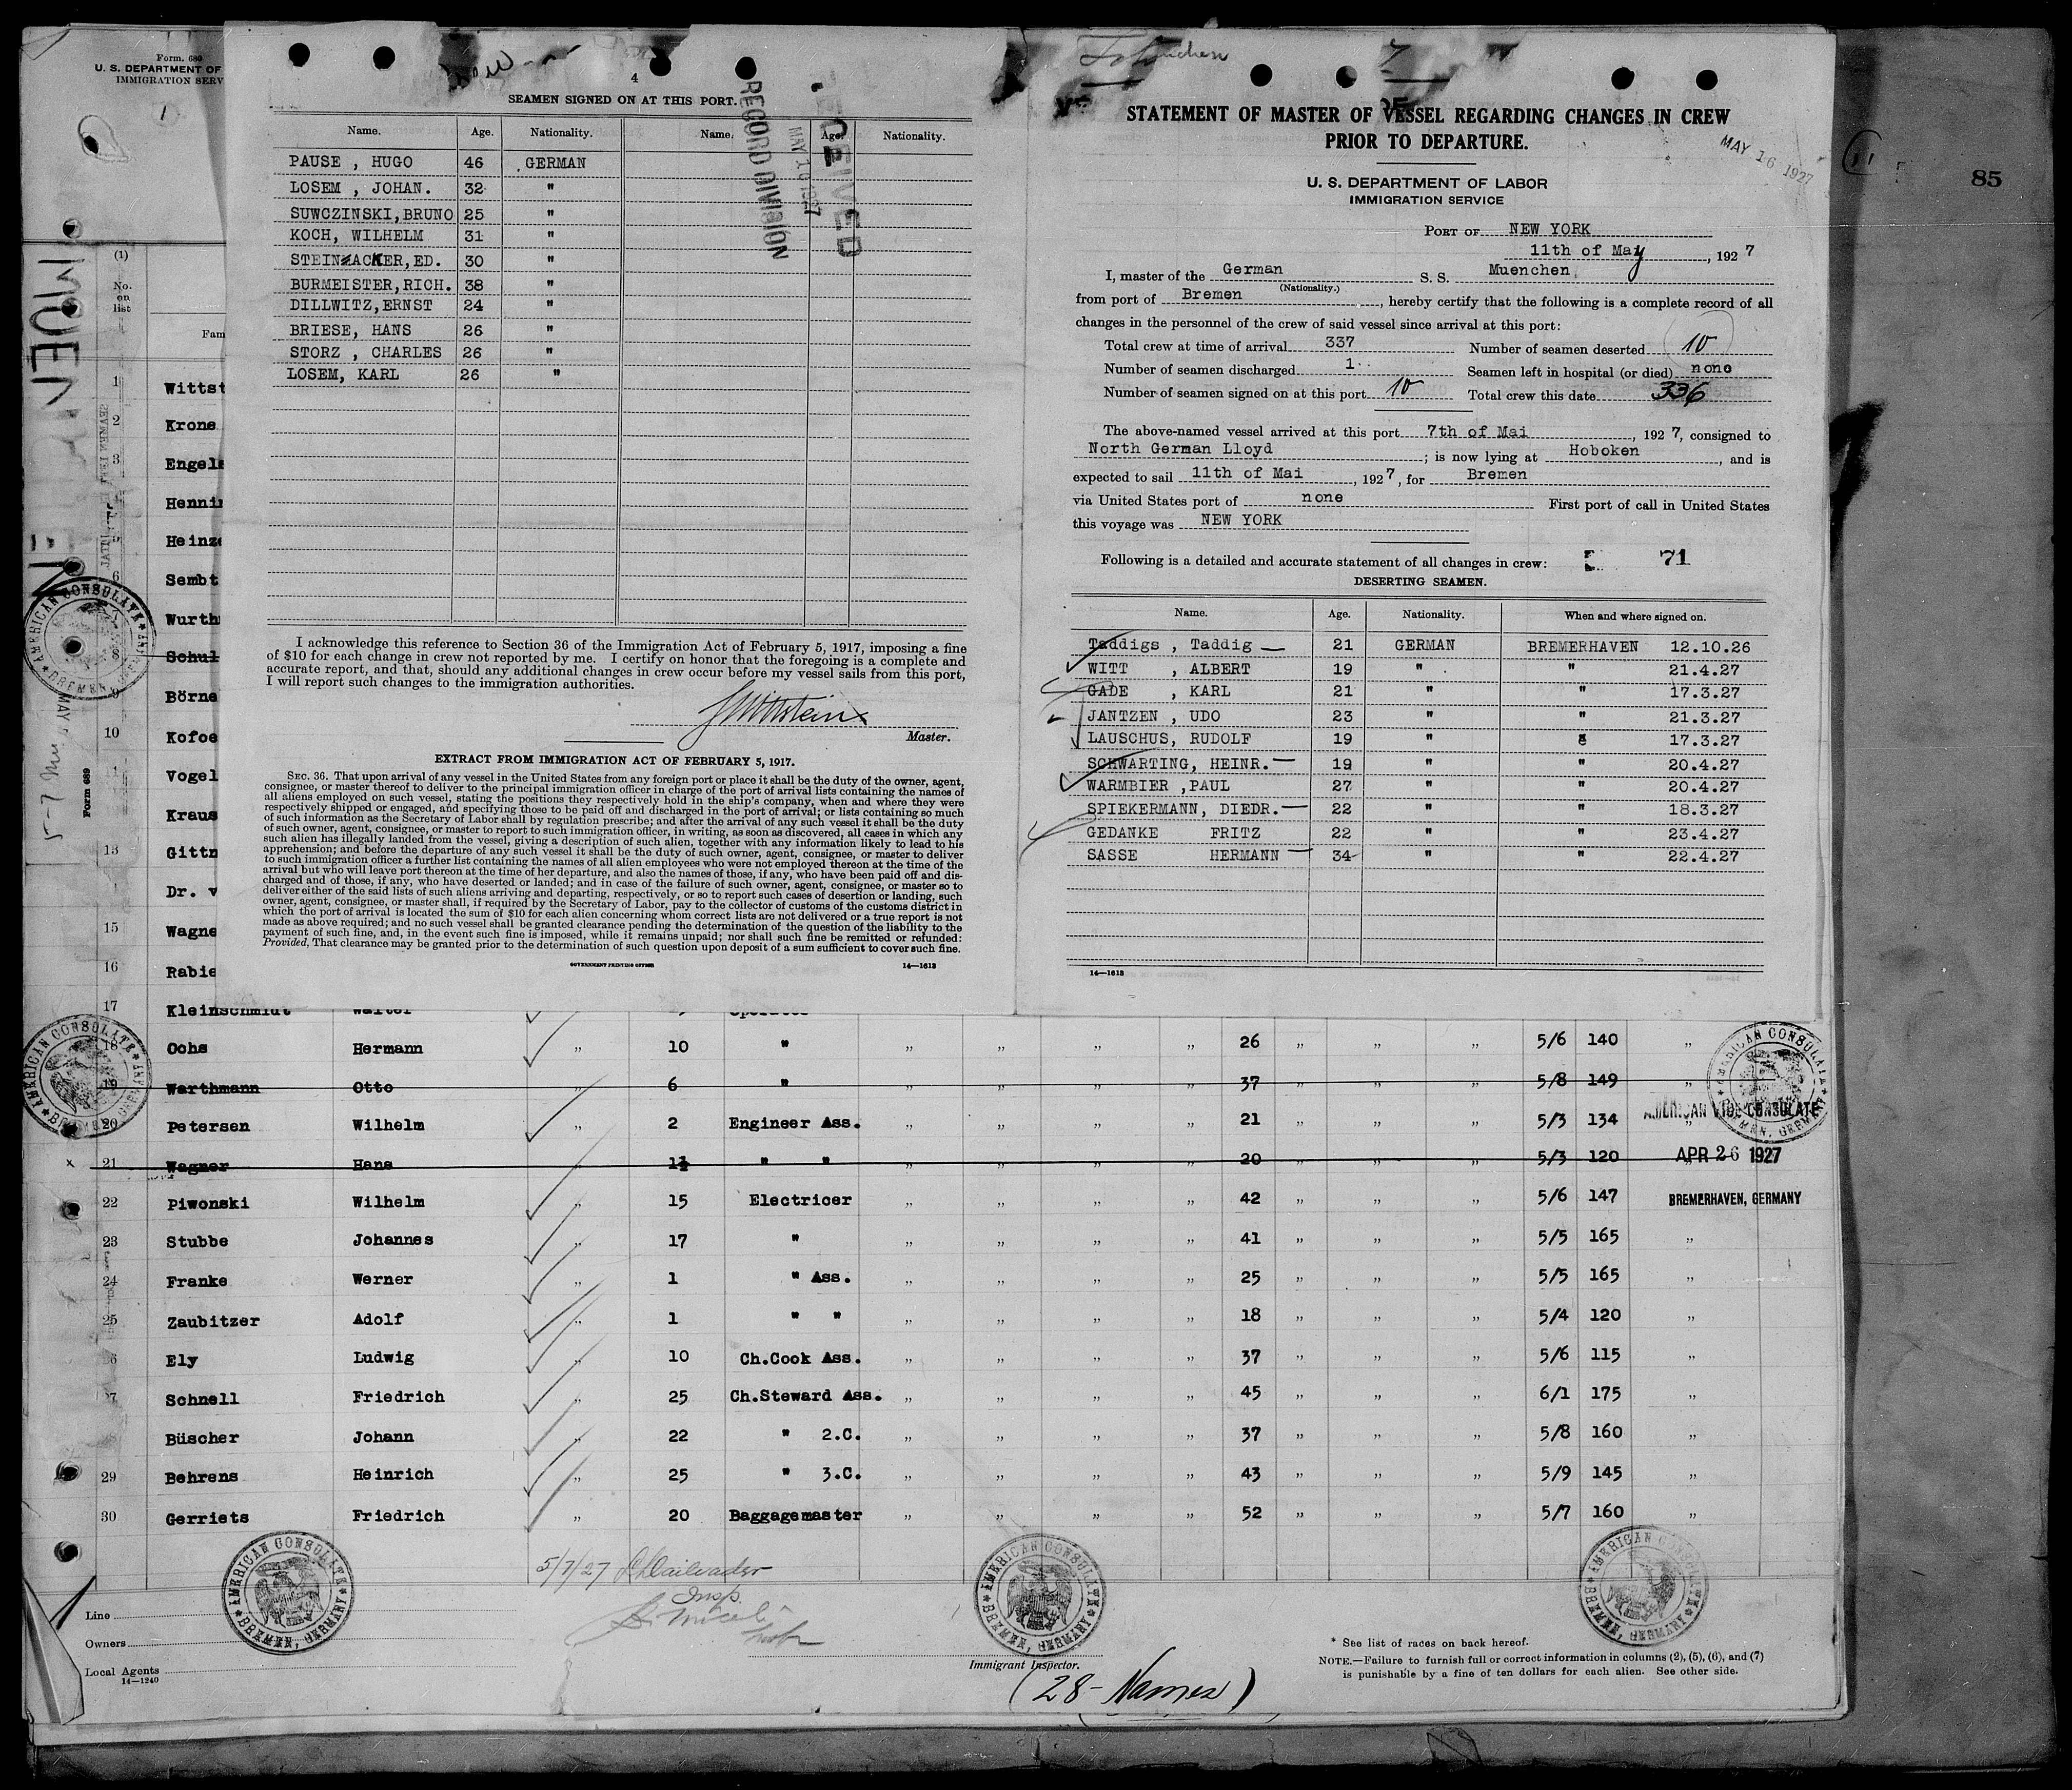 Form. 680
U. S. DEPARTMENT OF
IMMIGRATION SERV
1
(1)
No.
on
list
Fam
MUENCHEN
4
SEAMEN SIGNED ON AT THIS PORT.
Name. Age. Nationality. Name. Age. Nationality.
PAUSE , HUGO 46 GERMAN
LOSEM , JOHAN. 32 "
SUWCZINSKI,BRUNO 25 "
KOCH, WILHELM 31 "
STEINACKER,ED. 30 "
BURMEISTER,RICH. 38 "
DILLWITZ,ERNST 24 "
BRIESE, HANS 26 "
STORZ , CHARLES 26 "
LOSEM, KARL 26 "
RECEIVED
MAY 10 1927
RECORD DIVISION
I acknowledge this reference to Section 36 of the Immigration Act of February 5, 1917, imposing a fine
of $10 for each change in crew not reported by me. I certify on honor that the foregoing is a complete and
accurate report, and that, should any additional changes in crew occur before my vessel sails from this port,
I will report such changes to the immigration authorities.
Master.
EXTRACT FROM IMMIGRATION ACT OF FEBRUARY 5, 1917.
SEC. 36. That upon arrival of any vessel in the United States from any foreign port or place it shall be the duty of the owner, agent,
consignee, or master thereof to deliver to the principal immigration officer in charge of the port of arrival lists containing the names of
all aliens employed on such vessel, stating the positions they respectively hold in the ship's company, when and where they were
respectively shipped or engaged, and specifying those to be paid off and discharged in the port of arrival; or lists containing so much
of such information as the Secretary of Labor shall by regulation prescribe; and after the arrival of any such vessel it shall be the duty
of such owner, agent, consignee, or master to report to such immigration officer, in writing, as soon as discovered, all cases in which any
such alien has illegally landed from the vessel, giving a description of such alien, together with any information likely to lead to his
apprehension; and before the departure of any such vessel it shall be the duty of such owner, agent, consignee, or master to deliver
to such immigration officer a further list containing the names of all alien employees who were not employed thereon at the time of the
arrival but who will leave port thereon at the time of her departure, and also the names of those, if any, who have been paid off and dis-
charged and of those, if any, who have deserted or landed; and in case of the failure of such owner, agent, consignee, or master so to
deliver either of the said lists of such aliens arriving and departing, respectively, or so to report such cases of desertion or landing, such
owner, agent, consignee, or master shall, if required by the Secretary of Labor, pay to the collector of customs of the customs district in
which the port of arrival is located the sum of $10 for each alien concerning whom correct lists are not delivered or a true report is not
made as above required; and no such vessel shall be granted clearance pending the determination of the question of the liability to the
payment of such fine, and, in the event such fine is imposed, while it remains unpaid; nor shall such fine be remitted or refunded:
Provided, That clearance may be granted prior to the determination of such question upon deposit of a sum sufficient to cover such fine.
GOVERNMENT PRINTING OFFICE 14—1613
STATEMENT OF MASTER OF VESSEL REGARDING CHANGES IN CREW
PRIOR TO DEPARTURE.
MAY 16 1927
85
U. S. DEPARTMENT OF LABOR
IMMIGRATION SERVICE
PORT OF NEW YORK
11th of May , 1927
I, master of the German S. S. Muenchen
(Nationality.)
from port of Bremen , hereby certify that the following is a complete record of all
changes in the personnel of the crew of said vessel since arrival at this port:
Total crew at time of arrival 337 Number of seamen deserted 10
Number of seamen discharged 1 Seamen left in hospital (or died) none
Number of seamen signed on at this port 10 Total crew this date 336
The above-named vessel arrived at this port 7th of Mai , 1927, consigned to
North German Lloyd ; is now lying at Hoboken , and is
expected to sail 11th of Mai , 1927, for Bremen
via United States port of none First port of call in United States
this voyage was NEW YORK
Following is a detailed and accurate statement of all changes in crew: 71
DESERTING SEAMEN.
Name. Age. Nationality. When and where signed on.
Taddigs , Taddig 21 GERMAN BREMERHAVEN 12.10.26
WITT , ALBERT 19 " " 21.4.27
GADE , KARL 21 " " 17.3.27
JANTZEN , UDO 23 " " 21.3.27
LAUSCHUS, RUDOLF 19 " " 17.3.27
SCHWARTING, HEINR. 19 " " 20.4.27
WARMBIER ,PAUL 27 " " 20.4.27
SPIEKERMANN, DIEDR. 22 " " 18.3.27
GEDANKE FRITZ 22 " " 23.4.27
SASSE HERMANN 34 " " 22.4.27
14—1613
1 Wittst
2 Krone
3 Engels
Hennin
Heinze
6 Sembt
Wurthm
8 Schul
9 Börne
10 Kofoe
Vogel
Kraus
13 Gittn
Dr. v
15 Wagne
16 Rabie
17 Kleinschmidt Walter
18 Ochs Hermann „ 10 " „ „ „ „ 26 „ „ „ 5/6 140 „
19 Warthmann Otto „ 6 " „ „ „ „ 37 „ „ „ 5/8 149 „
20 Petersen Wilhelm „ 2 Engineer Ass. „ „ „ „ 21 „ „ „ 5/3 134 „
21 Wagner Hans „ 1½ " " „ „ „ „ 20 „ „ „ 5/3 120
22 Piwonski Wilhelm „ 15 Electricer „ „ „ „ 42 „ „ „ 5/6 147
23 Stubbe Johannes „ 17 " „ „ „ „ 41 „ „ „ 5/5 165 „
24 Franke Werner „ 1 " Ass. „ „ „ „ 25 „ „ „ 5/5 165 „
25 Zaubitzer Adolf „ 1 " " „ „ „ „ 18 „ „ „ 5/4 120 „
26 Ely Ludwig 10 Ch.Cook Ass. „ „ „ „ 37 „ „ „ 5/6 115 „
27 Schnell Friedrich „ 25 Ch.Steward Ass. „ „ „ „ 45 „ „ „ 6/1 175 „
Büscher Johann „ 22 " 2.C. „ „ „ „ 37 „ „ „ 5/8 160 „
29 Behrens Heinrich „ 25 " 3.C. „ „ „ „ 43 „ „ „ 5/9 145 „
30 Gerriets Friedrich „ 20 Baggagemaster „ „ „ „ 52 „ „ „ 5/7 160 „
AMERICAN VICE CONSULATE
APR 26 1927
BREMERHAVEN, GERMANY
AMERICAN CONSULATE
BREMEN, GERMANY
AMERICAN CONSULATE
BREMEN, GERMANY
AMERICAN CONSULATE
BREMEN, GERMANY
AMERICAN CONSULATE
BREMEN, GERMANY
AMERICAN CONSULATE
BREMEN, GERMANY
AMERICAN CONSULATE
BREMEN, GERMANY
Form 689
5/7/27
Insp.
Line
Owners
Local Agents
14—1240
Immigrant Inspector.
(28- Names)
* See list of races on back hereof.
NOTE.—Failure to furnish full or correct information in columns (2), (5), (6), and (7)
is punishable by a fine of ten dollars for each alien. See other side.